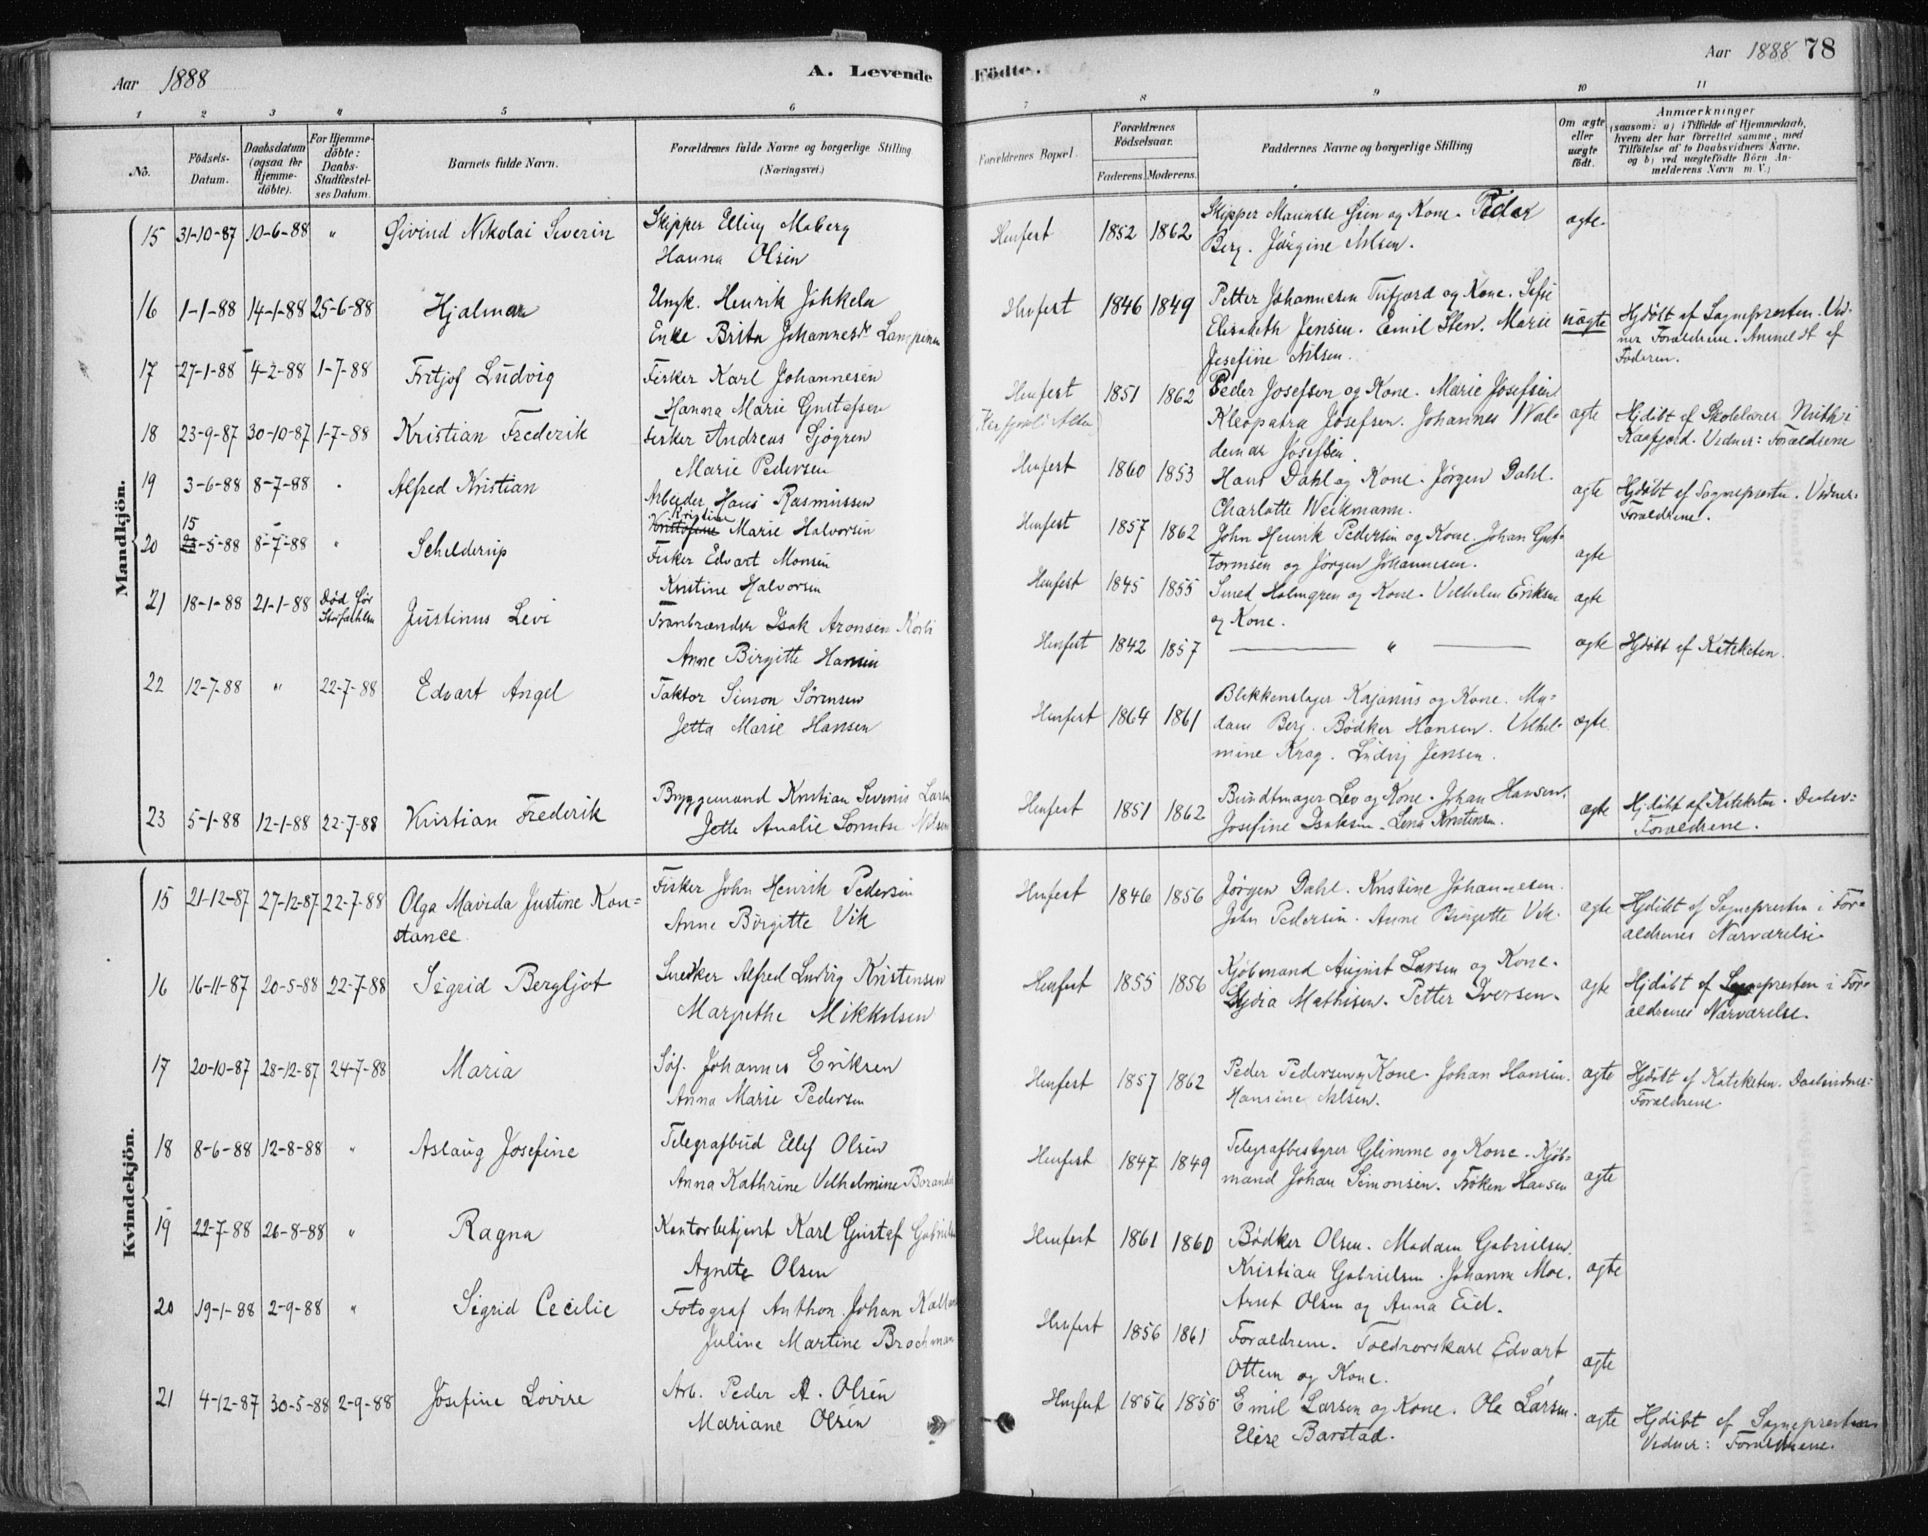 Aar 1888
A. Levende
Födte.
Aar 1888 78
1 2 3 4 5 6 7 8 9 10 11
No.
Födsels-
Datum.
Daabsdatum
(ogsaa for
Hjemme-
döbte).
For Hjemme-
döbte:
Daabs-
Stadfæstel-
ses Datum.
Barnets fulde Navn.
Forældrenes fulde Navne og borgerlige Stilling
(Næringsvei.)
Forældrenes Bopæl.
Forældrenes
Födselsaar.
Faderens. Moderens.
Faddernes Navne og borgerlige Stilling
Om ægte
eller
uægte
födt.
Anmærkninger
(saasom: a) i Tilfælde af Hjemmedaab,
hvem der har forrettet samme, med
Tilföielse af to Daabsvidners Navne,
og b) ved uægtefödte Börn An-
melderens Navn m. V.)
Mandkjön.
15 31-10-87 10-6-88 " Øivind Nikolai Severin
Skipper Elling Moberg
Hanna Olsen
1852 1862
Skipper Kone. Peder
Berg. Jørgine Nilsen.
ægte.
16 1-1-88 14-1-88 25-6-88 Hjalmar
Ungk. Henrik Johkela
Enke Brita Johannesd.
1846 1849
Petter Johannesen og Kone.
Elisabeth Jensen. Emil Sten. Marie
Josefine Nilsen.
uægte
Hjdøbt af Sognepresten. Vid-
ner Forældrene. Anmeldt af
Faderen.
17 27-1-88 4-2-88 1-7-88 Fritjof Ludvig
Fisker Karl Johannesen
Hanna Marie Gustafsen
1851 1862
Peder Josefsen og Kone. Marie Josefsen
Kleopatra Josefsen. Johannes Wal-
demar Josefsen
ægte
Hjdøbt af Skolelærer
Kaafjord. Vidner: Forældrene
18 23-9-87 30-10-87 1-7-88 Kristian Frederik
Fisker Andreas Sjøgren
Marie Pedersen
1860 1853
Hans Dahl og Kone. Jørgen Dahl.
Charlotte Weikmann.
ægte
Hjdøbt af Sognepresten. Vidner:
Forældrene.
19 3-6-88 8-7-88 Alfred Kristian
Arbeider Hans Rasmussen
Kristine
Marie Halvorsen
1857 1862
John Henrik Pedersen og Kone. Johan Gut-
tormsen og Jørgen Johannesen.
ægte
20 15-5-88 8-7-88 " Schelderup
Fisker Edvart Monsen
Kristine Halvorsen
1845 1855
Smed Holmgren og Kone. Vilhelm Eriksen
og Kone.
ægte
21 18-1-88 21-1-88 Død før
Justinus Levi
Tranbrænder Isak Aronsen
Anne Birgitte Hansen
1842 1857
"
ægte
Hjdøbt af Kateketen.
22 12-7-88 " 22-7-88 Edvart Angel
Faktor Simon Sørensen
Jetta Marie Hansen
1864 1861
Blikkenslager Kajanus og Kone. Ma-
dam Berg. Bødker Hansen. Vilhel-
mine Krag. Ludvig Jensen.
ægte.
23 5-1-88 12-1-88 22-7-88 Kristian Frederik
Bryggemand Kristian Larsen
Jette Amalie Nilsen
1851 1862
Bundtmager Lev og Kone. Johan Hansen.
Josefine Isaksen. Lena Kristensen.
ægte
Hjdøbt af Kateketen.
Forældrene.
Kvindekjön.
15 21-12-87 27-12-87 22-7-88 Olga Mavida Justine Kon-
stance.
Fisker John Henrik Pedersen
Anne Birgitte Vik
1846 1856
Jørgen Dahl. Kristine Johannesen.
John Pedersen. Anne Birgitte Vik.
ægte
Hjdøbt af Sognepresten i For-
ældrenes Nærværelse.
16 16-11-87 20-5-88 22-7-88 Sigrid Bergljot
Snedker Alfred Ludvig Kristensen
Margrethe Mikkelsen
1855 1856
Kjøbmand August Larsen og Kone.
Lydia Mathisen. Petter Iversen.
ægte
Hjdøbt af Sognepresten i For-
ældrenes Nærværelse.
17 20-10-87 28-12-87 24-7-88 Maria
Søf. Johannes Eriksen
Anna Marie Pedersen
1857 1862
Peder Pedersen og Kone. Johan Hansen.
Hansine Nilsen.
ægte
Hjdøbt af Kateketen. Daabsvidner:
Forældrene
18 8-6-88 12-8-88 " Aslaug Josefine
Telegrafbud Ellef Olsen
Anna Kathrine Vilhelmine
1847 1849
Telegrafbestyrer Glimme og Kone. Kjøb-
mand Johan Simonsen. Frøken Hansen
ægte
19 22-7-88 26-8-88 " Ragna
Kontorbetjent Karl Gustaf
Agnethe Olsen
1861 1860
Bødker Olsen. Madam Gabrielsen.
Kristian Gabrielsen. Johanna Moe.
Arnt Olsen og Anna Eid.
ægte
20 19-1-88 2-9-88 " Sigrid Cecilie
Fotograf Anthon Johan
Juline Martine
1856 1861
Forældrene. Toldrorskarl Edvart
Ottem og Kone.
ægte
21 4-12-87 30-5-88 2-9-88 Josefine Lovise
Arb. Peder A. Olsen
Mariane Olsen
1856 1855
Emil Larsen og Kone. Ole Larsen.
Elise Barstad.
ægte
Hjdøbt af Sognepresten
Vidner: Forældrene.